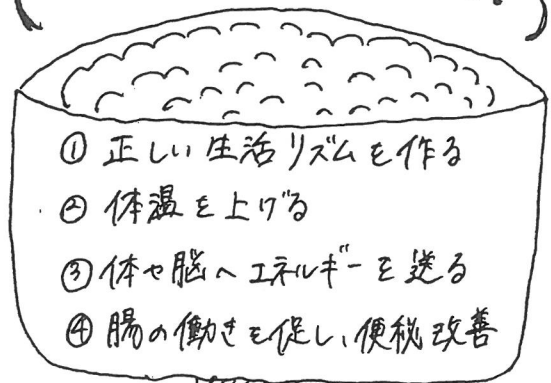 ① 正しい生活リズムを作る
② 体温を上げる
③ 体や脳へエネルギーを送る
④ 腸の働きを促し、便秘改善